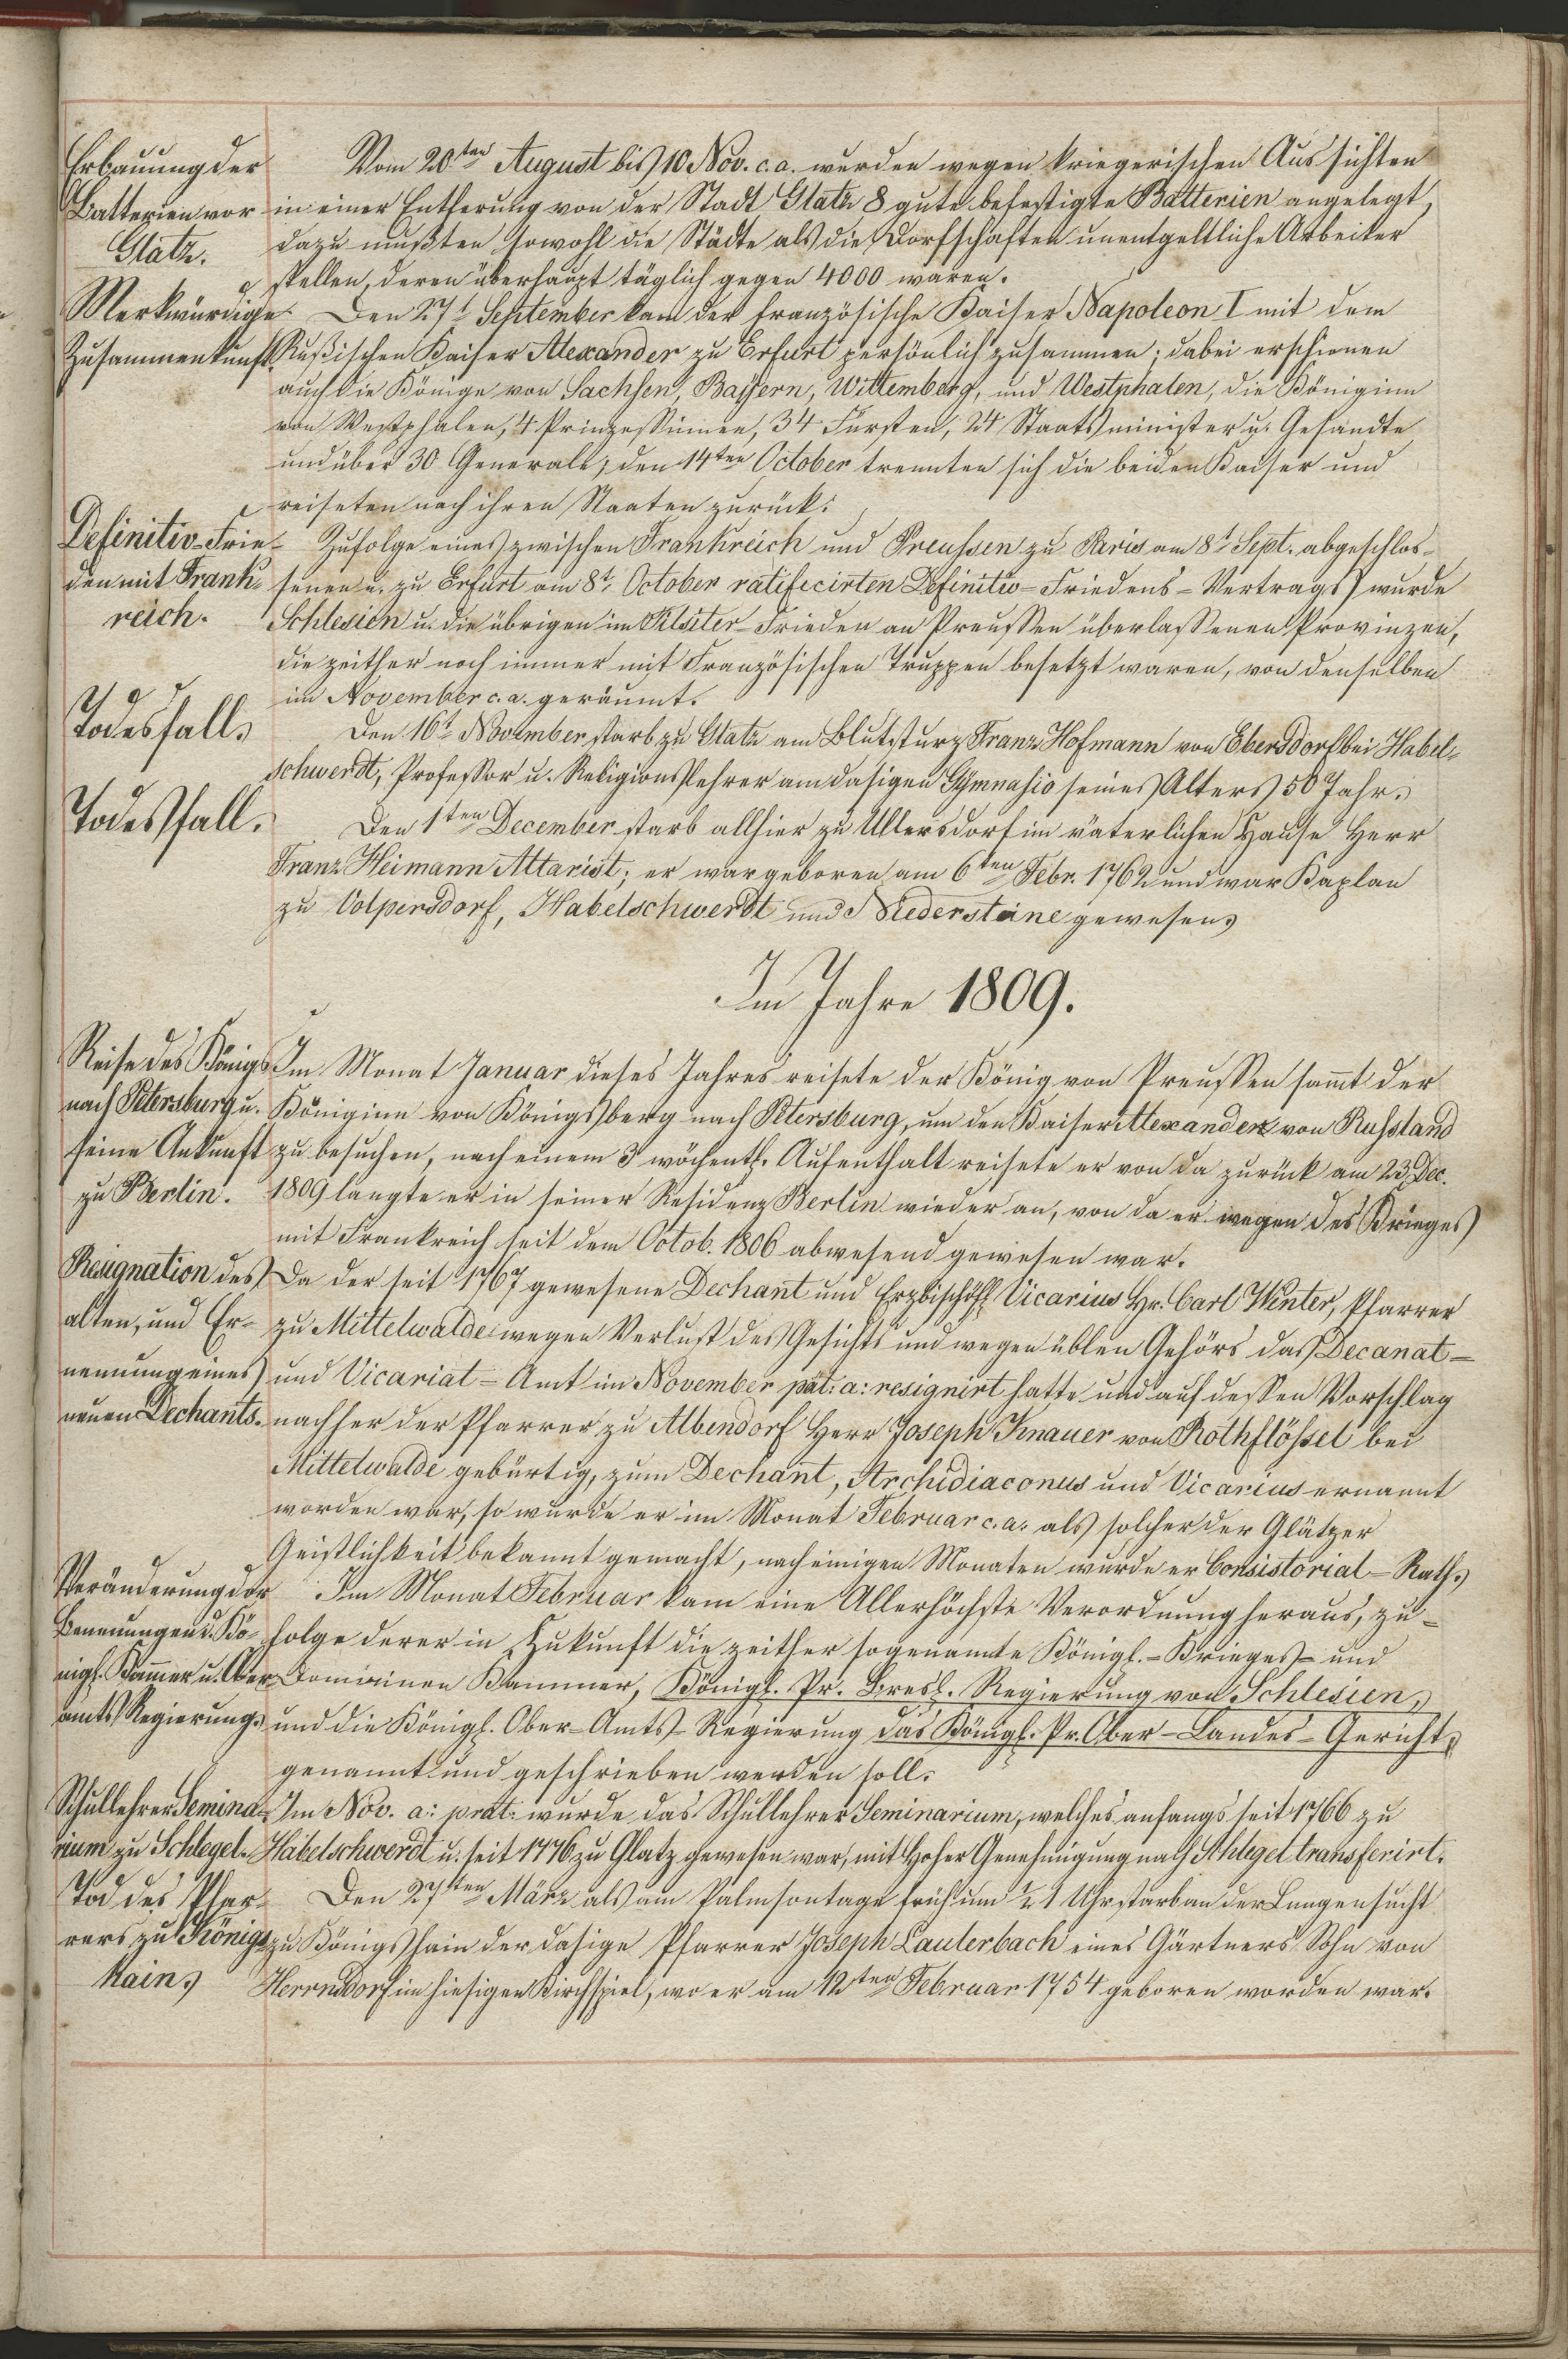 Erbauung der
Batterien vor
Glatz.
Vom 20ten August bis 10 Nov. c. a. wurden wegen kriegerischen Aussichten
in einer Entferung von der Stadt Glatz 8 gute befestigte Batterien angelegt,
dazu mußten sowohl die Städte als die Dorfschaften unentgeltliche Arbeiter
stellen, deren überhaupt täglich gegen 4000 waren.
Merkwürdige
Zusammenkunft.
Den 27t September kam der französische Kaiser Napoleon I mit dem
Rußischen Kaiser Alexander zu Erfurt persönlich zusammen; dabei erschienen
auch die Könige von Sachsen, Bayern, Wittemberg, und Westphalen, die Königinn
von Westphalen, 4 Prinzessinnen, 34 Fürsten, 24 Staatsminister u. Gesandte
und über 30 Generale; den 14ten October trennten sich die beiden Kaiser und
reiseten nach ihren Staaten zurück.
Definitiv-Frie-
den mit Frank-
reich.
Zufolge eines zwischen Frankreich und Preussen zu Paris am 8t Sept. abgeschlos-
senen u. zu Erfurt am 8t October ratificirten Definitiv-Friedens-Vertrags wurde
Schlesien u. die übrigen im Tilsiter-Frieden an Preussen überlassenen Provinzen,
die zeither noch immer mit Französischen Truppen besetzt waren, von denselben
im November c. a. geräumt.
Todesfall.
Den 16t November starb zu Glatz am Blutsturz Franz Hofmann von Ebersdorf bei Habel-
schwerdt, Professor u. Religionslehrer am dasigen Gymnasio seines Alters 50 Jahr.
Todesfall.
Den 1ten December starb allhier zu Ullersdorf im väterlichen Hause Herr
Franz Heimann Altarist; er war geboren am 6ten Febr. 1762 und war Kaplan
zu Volpersdorf, Habelschwerdt und Niedersteine gewesen.
Im Jahre 1809.
Reise des Königs
nach Petersburg u.
seine Ankunft
zu Berlin.
Im Monat Januar dieses Jahres reisete der König von Preussen sammt der
Königinn von Königsberg nach Petersburg, um den Kaiser Alexander von Russland
zu besuchen, nach einem 3 wöchentl. Aufenthalt reisete er von da zurück am 23 Dec.
1809 langte er in seiner Residenz Berlin wieder an, von da er wegen des Krieges
mit Frankreich seit dem Octob. 1806 abwesend gewesen war.
Resignation des
alten, und Er-
nennung eines
neuen Dechants.
Da der seit 1767 gewesene Dechant und Erzbischöfl. Vicarius Hr. Carl Winter, Pfarrer
zu Mittelwalde wegen Verlust des Gesichts und wegen üblen Gehörs das Decanat-
und Vicariat-Amt im November pät: a: resignirt hatte und auf dessen Vorschlag
nachher der Pfarrer zu Albendorf Herr Joseph Knauer von Rothflössel bei
Mittelwalde gebürtig, zum Dechant, Archidiaconus und Vicarius ernannt
worden war, so wurde er im Monat Februar c. a. als solcher der Glätzer
Geistlichkeit bekannt gemacht, nach einigen Monaten wurde er Consistorial-Rath.
Veränderung der
Benennungen d. Kö-
nigl. Kammer u. Ober
amts Regierung.
Im Monat Februar kam eine Allerhöchste Verordnung heraus, zu-
folge derer in Zukunft die zeither sogenannte Königl.-Krieges- und
Domainen Kammer, Königl. Pr. Bresl. Regierung von Schlesien,
und die Königl. Ober-Amts-Regierung das Königl. Pr. Ober-Landes-Gericht,
genannt und geschrieben werden soll.
Schullehrer Semina-
rium zu Schlegel.
Im Nov. a: prät: wurde das Schullehrer Seminarium, welches anfangs seit 1766 zu
Habelschwerdt u. seit 1776 zu Glatz gewesen war, mit Hoher Genehmigung nach Schlegel transferirt.
Tod des Pfar-
rers zu Königs-
hain.
Den 27ten März als am Palmsontage früh um 1 Uhr starb an der Lungensucht
zu Königshain der dasige Pfarrer Joseph Lauterbach eines Gärtners Sohn von
Herrnsdorf im hiesigen Kirchspiel, wo er am 12ten Februar 1754 geboren worden war.